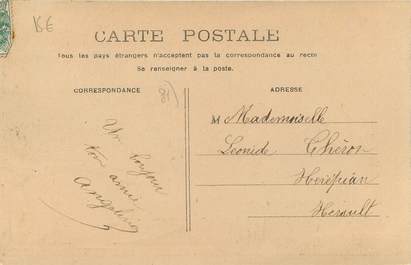 BE
CARTE POSTALE
Tous les pays étrangers n'acceptent pas la correspondance au recto
Se renseigner à la poste.
CORRESPONDANCE
81
ADRESSE
Un bonjour
ton amie
Angeline
M Mademoiselle
Léonide Chéron
Herépian
Herault